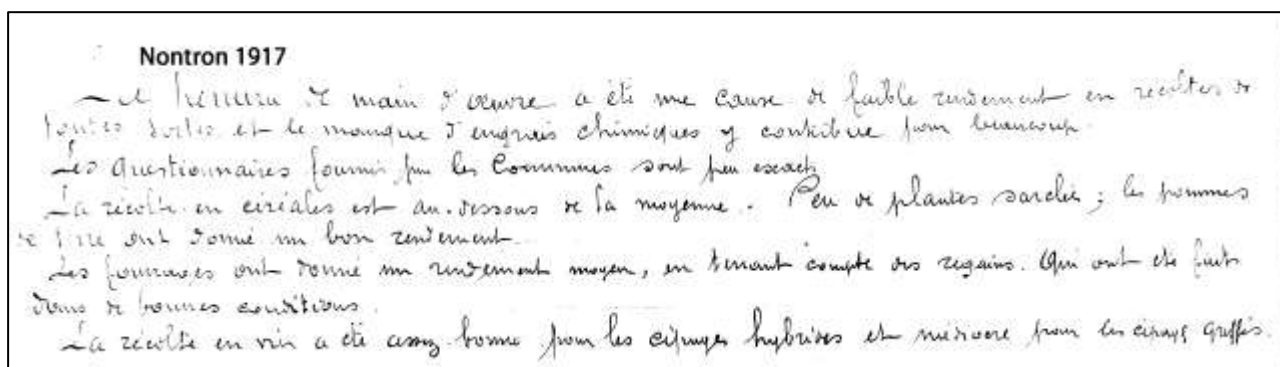 Nontron 1917
La pénurie de main d'œuvre a été une cause de faible rendement en récoltes de
toutes sortes et le manque d'engrais chimiques y contribue pour beaucoup.
Les questionnaires fournis par les Communes sont peu exacts
La récolte en céréales est au-dessous de la moyenne. Peu de plantes sarclées ; les pommes
de terre ont donné un bon rendement.
Les fourrages ont donné un rendement moyen, en tenant compte des regains. Qui ont été faits
dans de bonnes conditions.
La récolte en vin a été assez bonne pour les cépages hybrides et médiocre pour les cépages greffés.